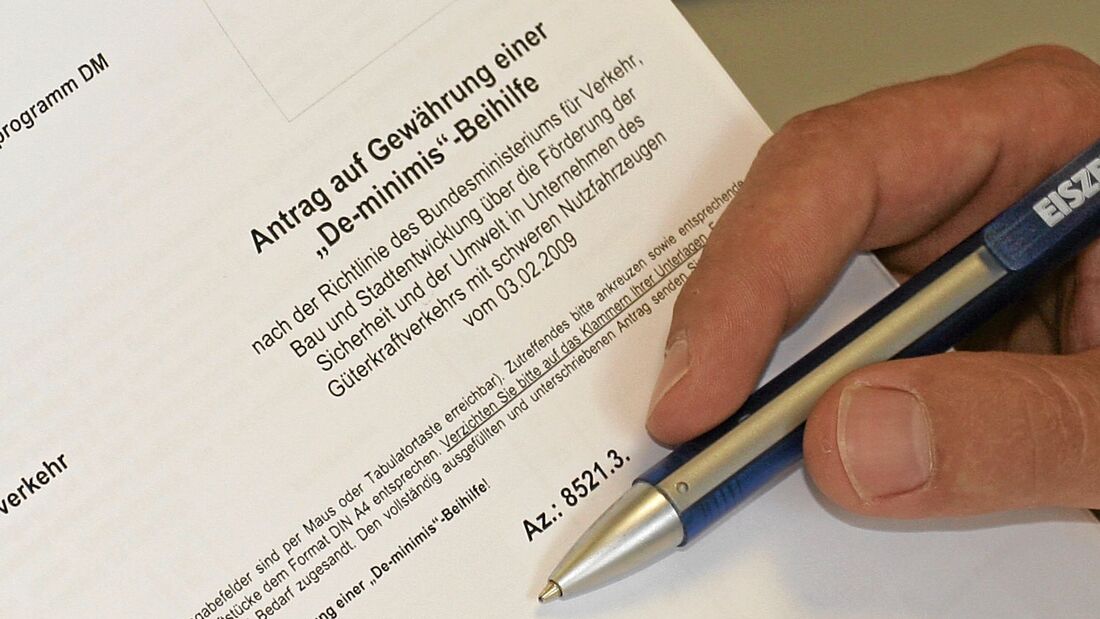 programm DM
Antrag auf Gewährung einer
„De-minimis“-Beihilfe
nach der Richtlinie des Bundesministeriums für Verkehr,
Bau und Stadtentwicklung über die Förderung der
Sicherheit und der Umwelt in Unternehmen des
Güterkraftverkehrs mit schweren Nutzfahrzeugen
vom 03.02.2009
verkehr
gabefelder sind per Maus oder Tabulatortaste erreichbar). Zutreffendes bitte ankreuzen sowie entsprechende
stücke dem Format DIN A4 entsprechen. Verzichten Sie bitte auf das Klammern Ihrer Unterlagen.
Bedarf zugesandt. Den vollständig ausgefüllten und unterschriebenen Antrag senden
ung einer „De-minimis“-Beihilfe!
Az.: 8521.3.
EISZE